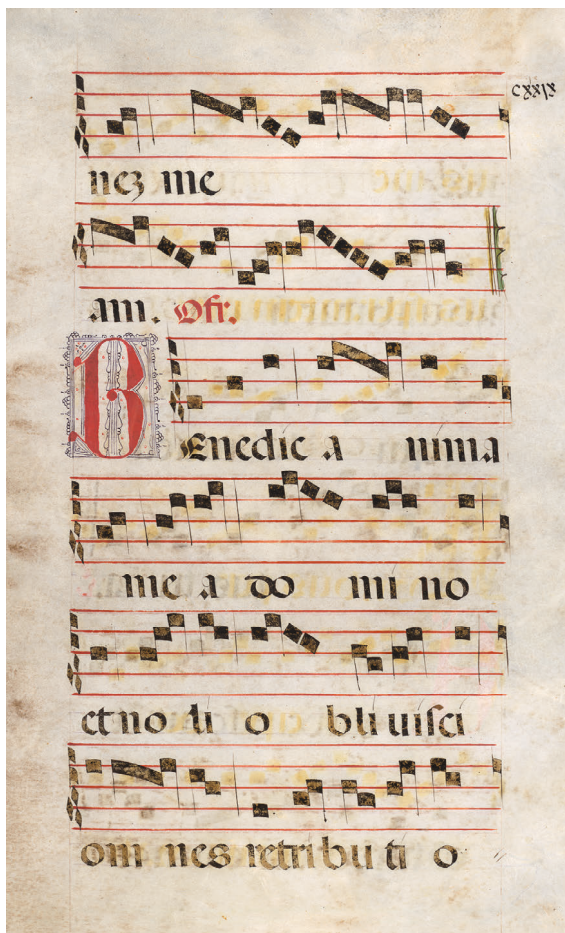 cxxix
neʒ me
am. Ofr.
Benedic a nima
me a do mi no
et no li o bli uisci
om nes retri bu ti o